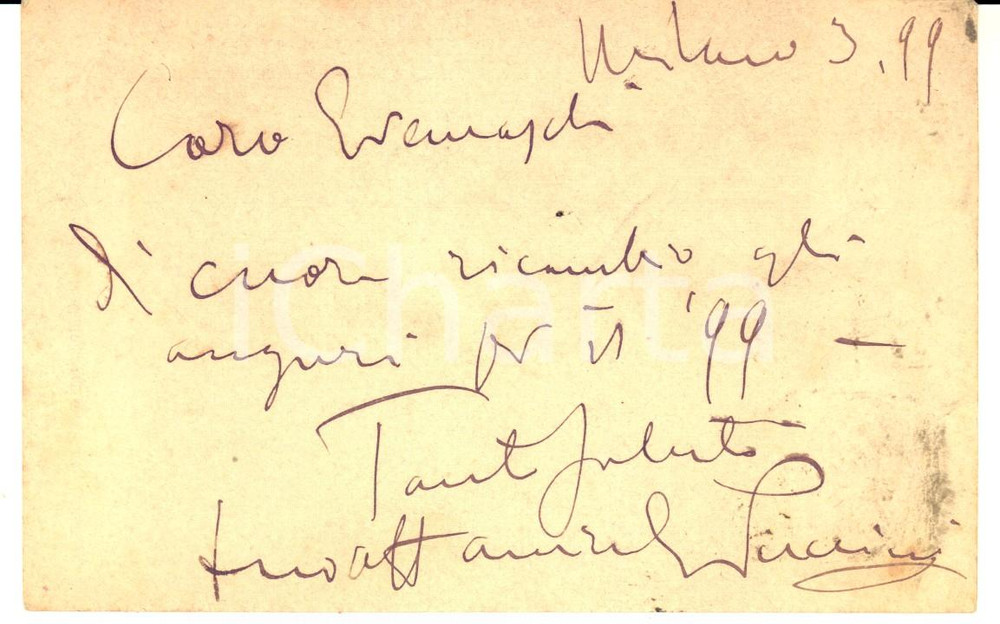 Milano 3.99
Caro
di cuore ricambio gli
auguri per il '99 —
Tanti saluti
tuo aff amico Puccini
iCharta